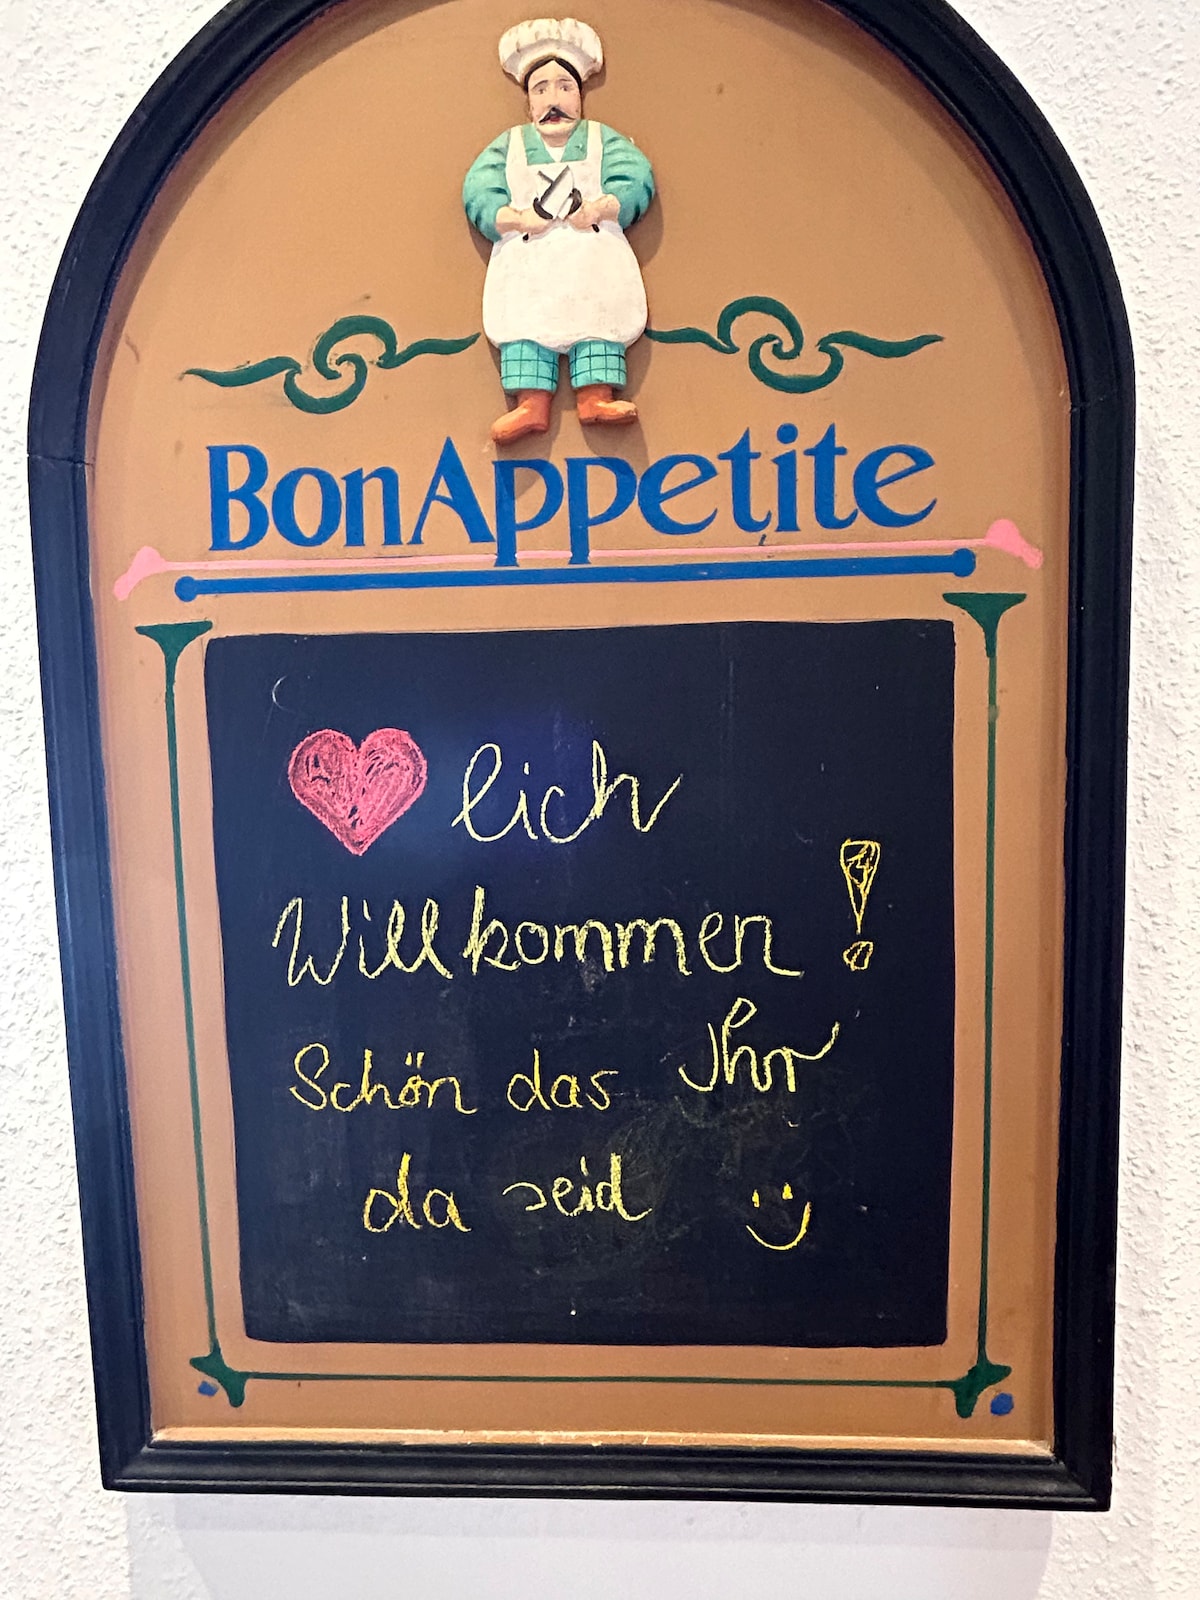 BonAppetite
lich
Willkommen!
Schön das Ihr
da seid